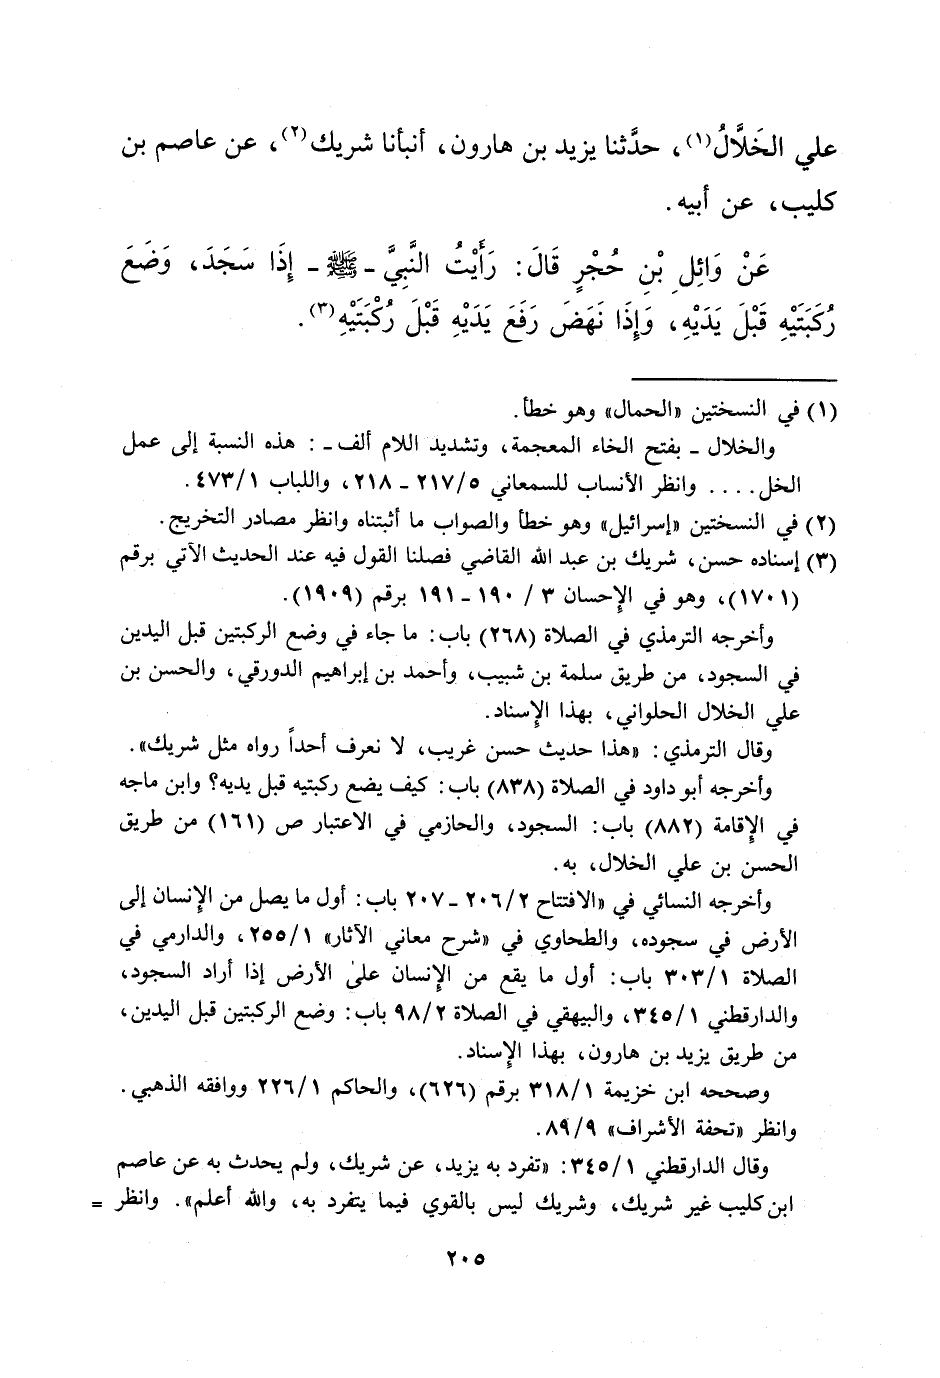 علي الخَلَّالُ(١)، حدَّثنا يزيد بن هارون، أنبأنا شريك(٢)، عن عاصم بن
كليب، عن أبيه.
عَنْ وَائِلِ بْنِ حُجْرٍ قَالَ: رَأَيْتُ النَّبِيَّ ـ ﷺ ـ إِذَا سَجَدَ، وَضَعَ
رُكْبَتَيْهِ قَبْلَ يَدَيْهِ، وَإِذَا نَهَضَ رَفَعَ يَدَيْهِ قَبْلَ رُكْبَتَيْهِ(٣).
(١) في النسختين «الحمال» وهو خطأ.
والخلال ـ بفتح الخاء المعجمة، وتشديد اللام ألف ـ: هذه النسبة إلى عمل
الخل.... وانظر الأنساب للسمعاني ٢١٧/٥ ـ ٢١٨، واللباب ٤٧٣/١.
(٢) في النسختين «إسرائيل» وهو خطأ والصواب ما أثبتناه وانظر مصادر التخريج.
(٣) إسناده حسن، شريك بن عبد الله القاضي فصلنا القول فيه عند الحديث الآتي برقم
(١٧٠١)، وهو في الإحسان ٣ / ١٩٠ ـ ١٩١ برقم (١٩٠٩).
وأخرجه الترمذي في الصلاة (٢٦٨) باب: ما جاء في وضع الركبتين قبل اليدين
في السجود، من طريق سلمة بن شبيب، وأحمد بن إبراهيم الدورقي، والحسن بن
علي الخلال الحلواني، بهذا الإسناد.
وقال الترمذي: «هذا حديث حسن غريب، لا نعرف أحداً رواه مثل شريك».
وأخرجه أبو داود في الصلاة (٨٣٨) باب: كيف يضع ركبتيه قبل يديه؟ وابن ماجه
في الإقامة (٨٨٢) باب: السجود، والحازمي في الاعتبار ص (١٦١) من طريق
الحسن بن علي الخلال، به.
وأخرجه النسائي في «الافتتاح ٢٠٦/٢ ـ ٢٠٧ باب: أول ما يصل من الإنسان إلى
الأرض في سجوده، والطحاوي في «شرح معاني الآثار» ٢٥٥/١، والدارمي في
الصلاة ٣٠٣/١ باب: أول ما يقع من الإنسان على الأرض إذا أراد السجود،
والدارقطني ٣٤٥/١، والبيهقي في الصلاة ٩٨/٢ باب: وضع الركبتين قبل اليدين،
من طريق يزيد بن هارون، بهذا الإسناد.
وصححه ابن خزيمة ٣١٨/١ برقم (٦٢٦)، والحاكم ٢٢٦/١ ووافقه الذهبي.
وانظر «تحفة الأشراف» ٨٩/٩.
وقال الدارقطني ٣٤٥/١: «تفرد به يزيد، عن شريك، ولم يحدث به عن عاصم
ابن كليب غير شريك، وشريك ليس بالقوي فيما يتفرد به، والله أعلم». وانظر =
٢٠٥